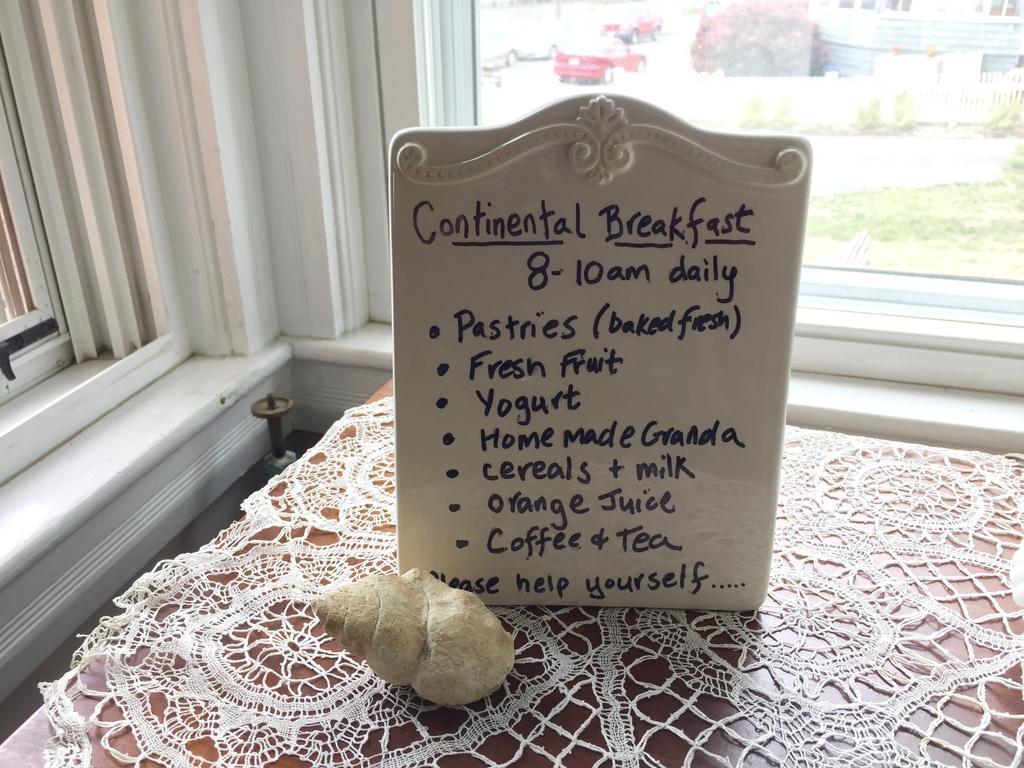 Continental Breakfast
8-10am daily
• Pastries (baked fresh)
• Fresh Fruit
• Yogurt
• Homemade Granola
• cereals + milk
• orange Juice
• Coffee & Tea
Please help yourself.....